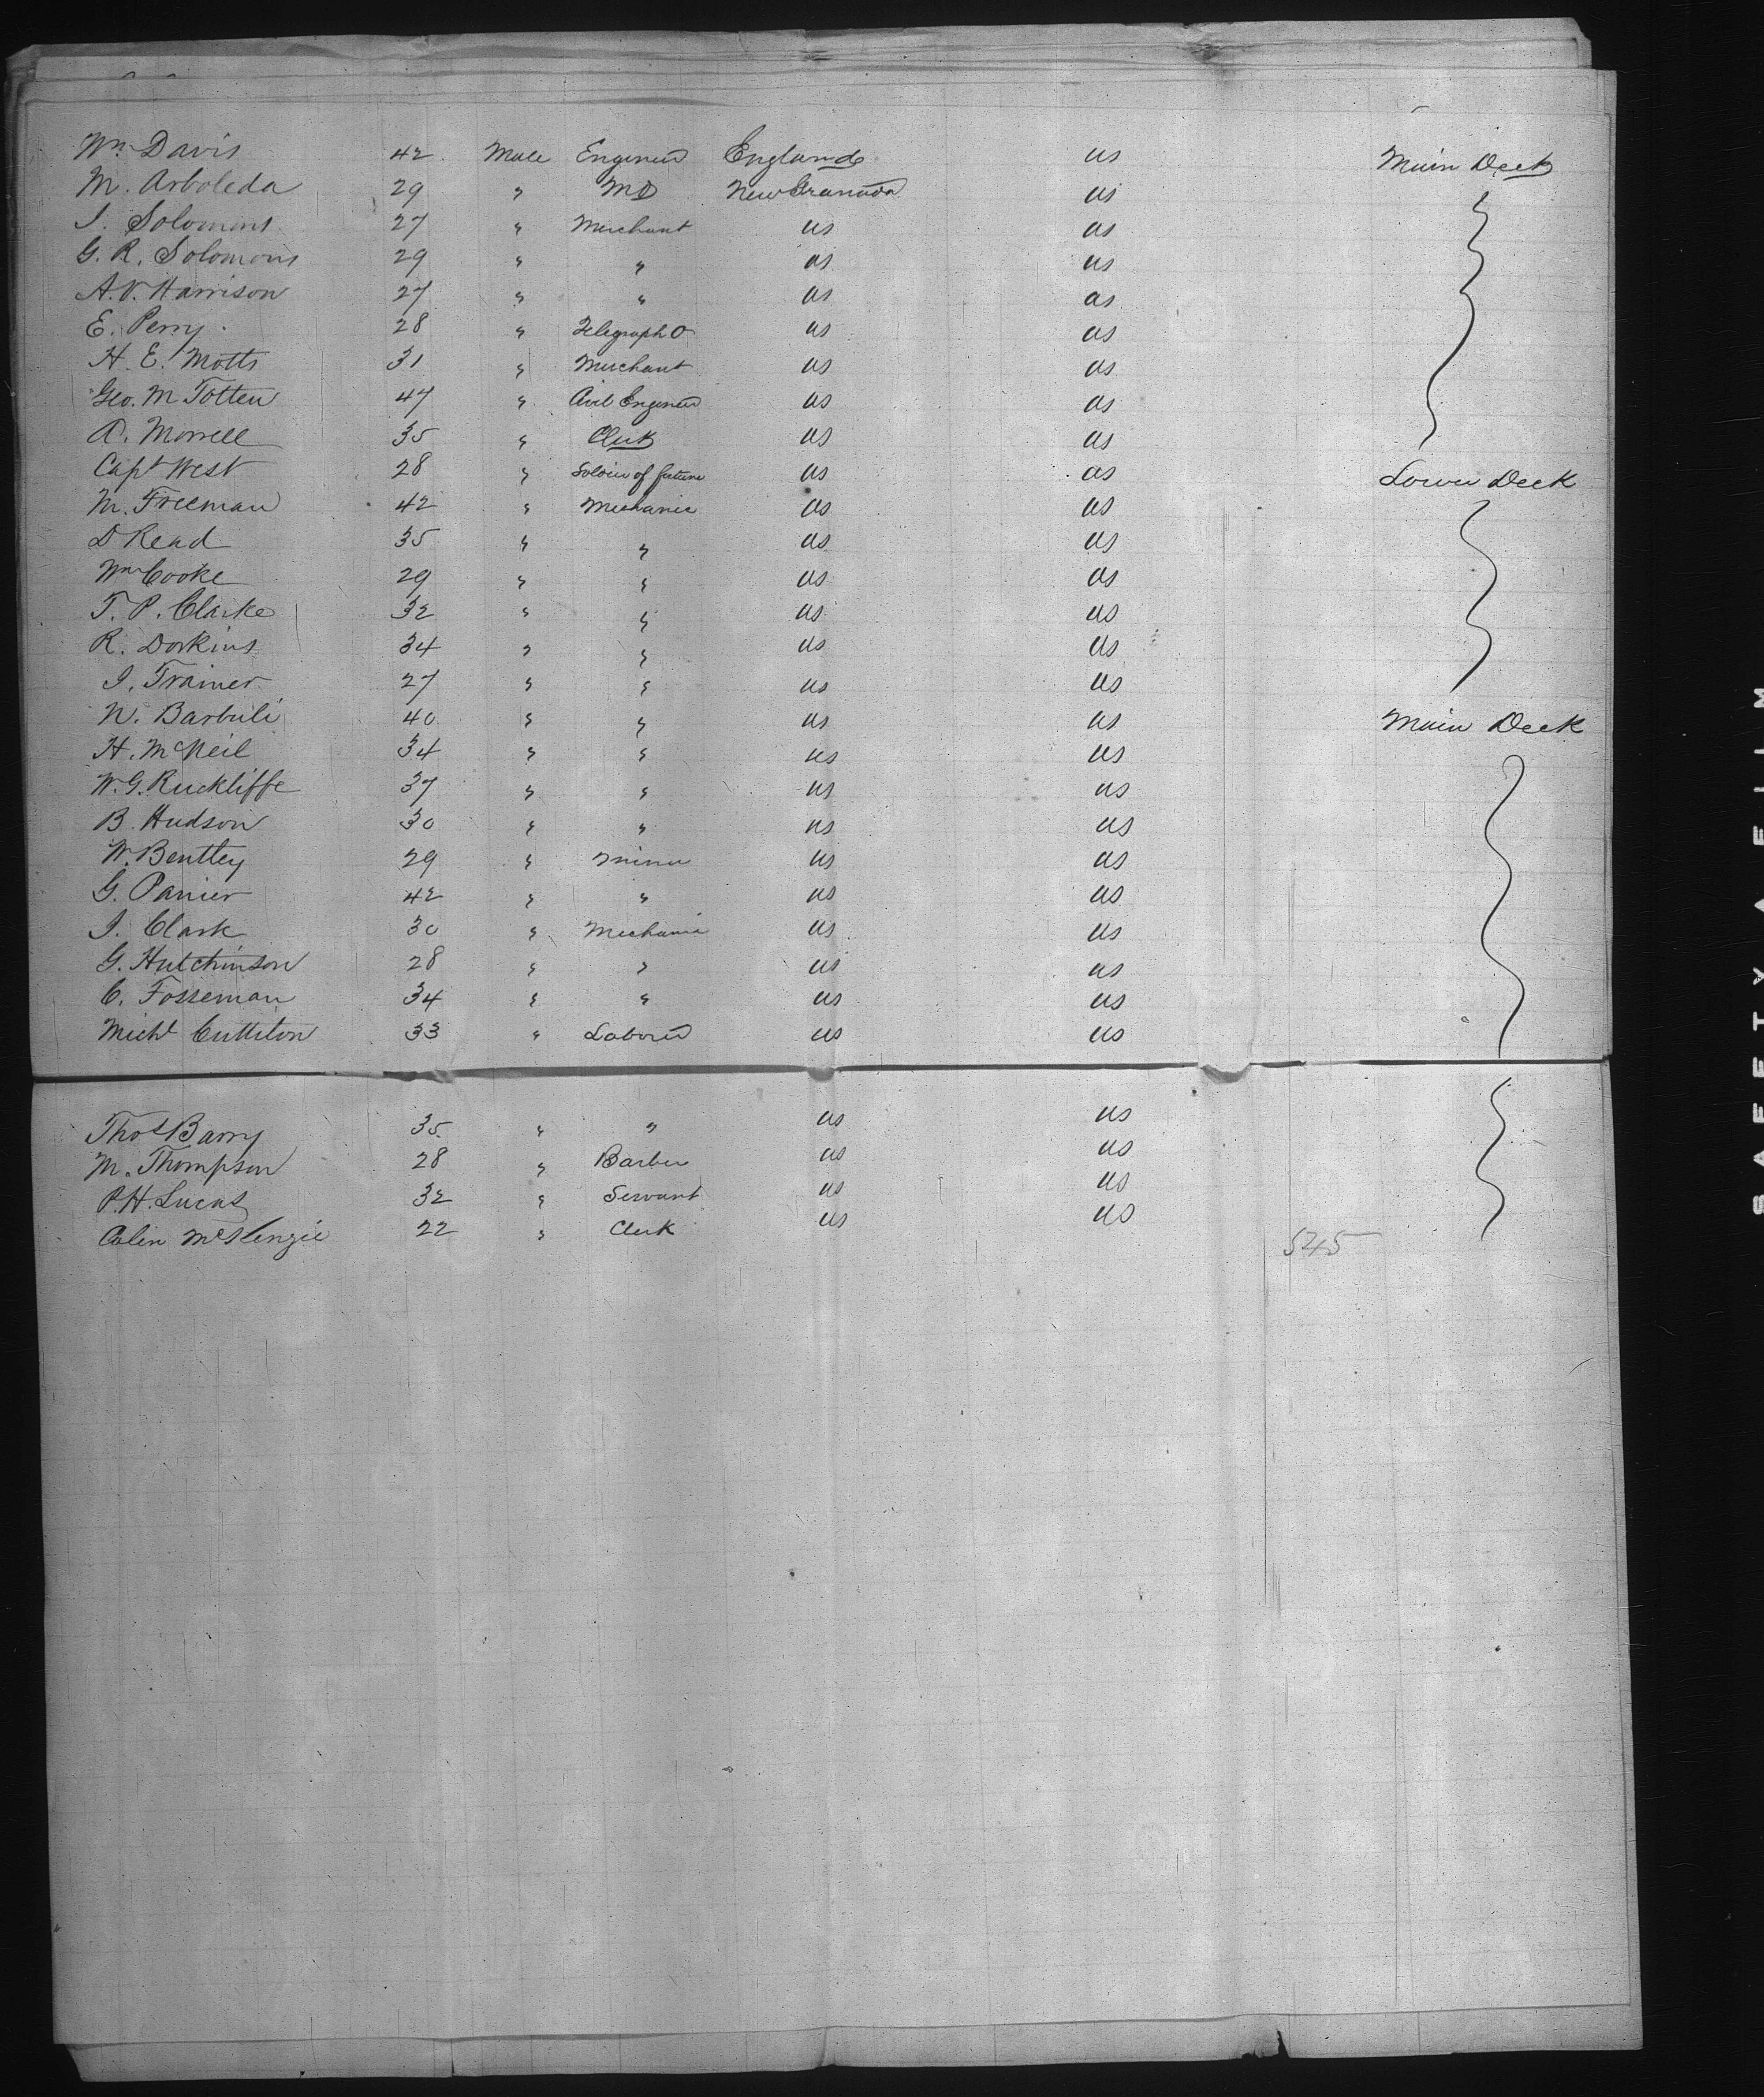 Wm Davis 42 Male Engineer England US Main Deck
M. Arboleda 29 " MD New Granada US
J. Solomons 27 " Merchant US US
G. R. Solomons 29 " " US US
A. V. Harrison 27 " " US US
E. Perry 28 " Telegraph O US US
H. E. Motts 31 " Merchant US US
Geo. M Totten 47 " Civil Engineer US US
A. Morrell 35 " Clerk US US
Capt West 28 " Soldier of fortune US US Lower Deck
M. Freeman 42 " Mechanic US US
D Read 35 " " US US
Wm Cooke 29 " " US US
T. P. Clarke 32 " " US US
R. Dorkins 34 " " US US
J. Trainer 27 " " US US
N. Barbuli 40 " " US US Main Deck
H. McNeil 34 " " US US
W. G. Ruckliffe 37 " " US US
B. Hudson 30 " " US US
W. Bentley 29 " Miner US US
G. Panier 42 " " US US
J. Clark 30 " Mechanic US US
G. Hutchinson 28 " " US US
C. Fosseman 34 " " US US
Michl 33 " Laborer US US
Thos Barry 35 " " US US
M. Thompson 28 " Barber US US
P. H. Lucas 32 " Servant US US
Colin McKenzie 22 " Clerk US US
545
SAFETY FILM